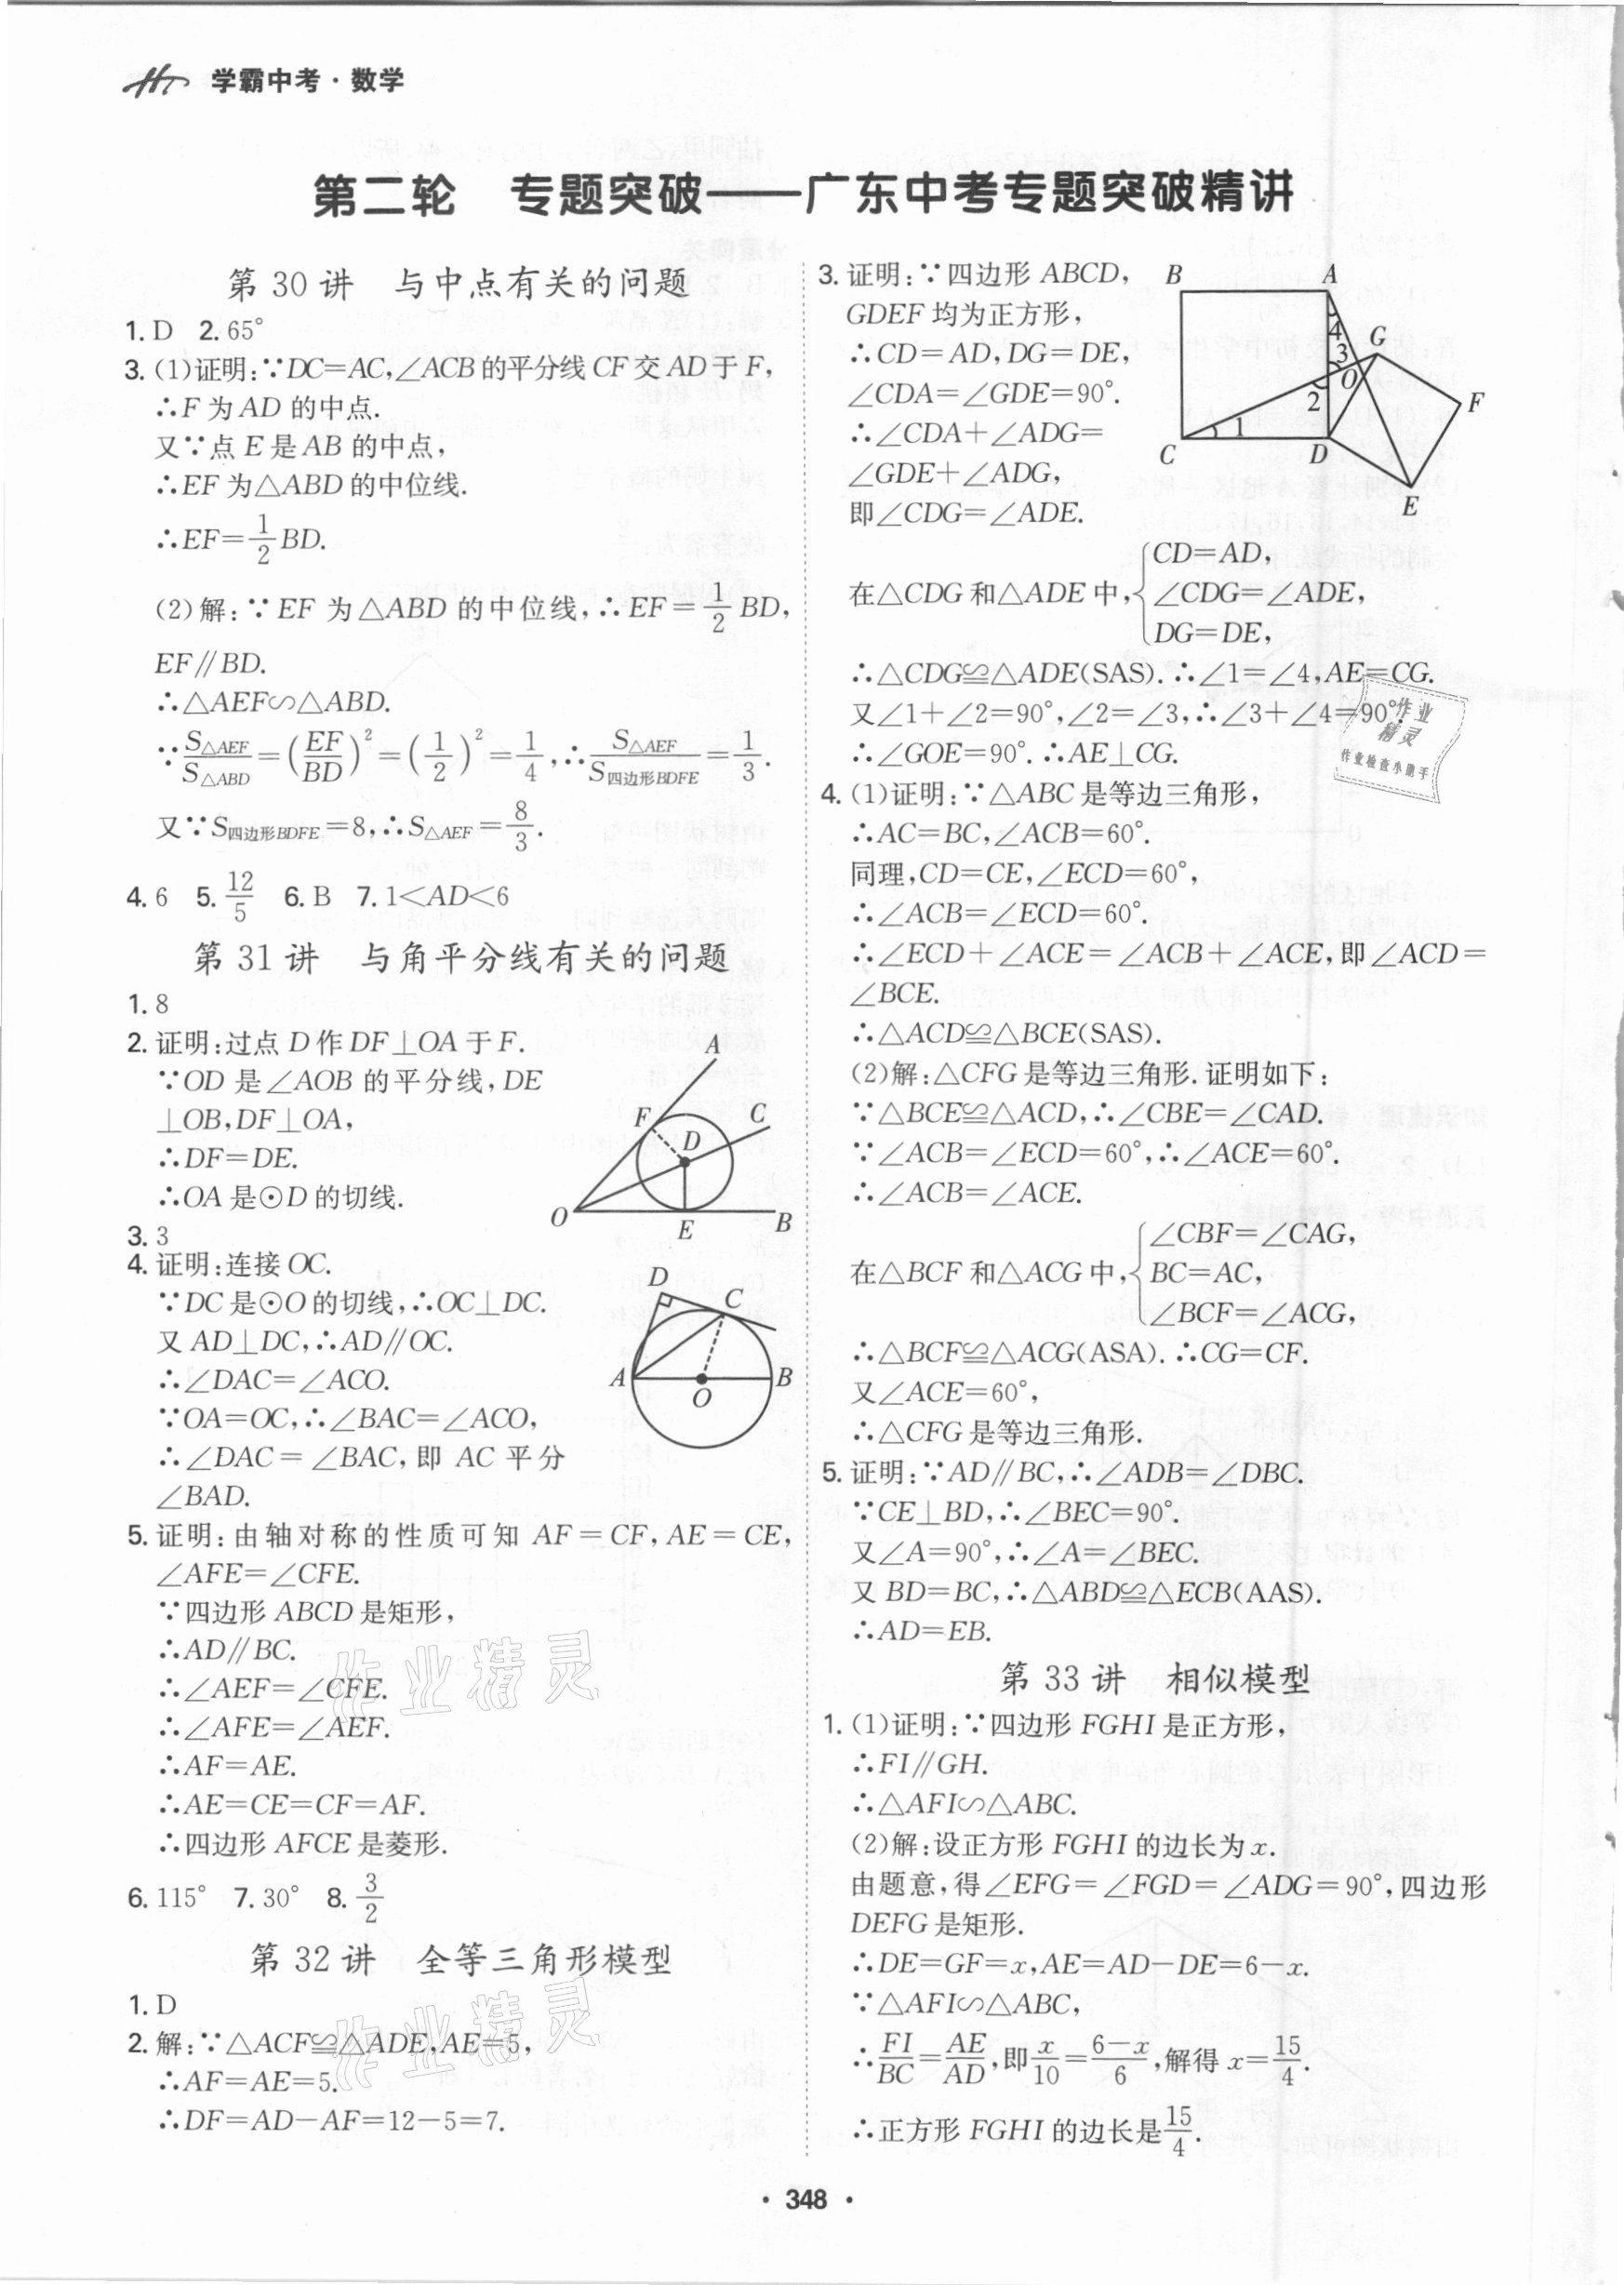 学霸中考·数学
第二轮 专题突破——广东中考专题突破精讲
第 30 讲 与中点有关的问题
1. D 2. 65°
3. (1)证明:∵DC=AC,∠ACB的平分线CF交AD于F,
∴F为AD的中点.
又∵点E是AB的中点,
∴EF为△ABD的中位线.
∴EF=1/2BD.
(2)解:∵EF为△ABD的中位线,∴EF=1/2BD,
EF∥BD.
∴△AEF∽△ABD.
∵S△AEF/S△ABD=(EF/BD)²=(1/2)²=1/4,∴S△AEF/S四边形BDFE=1/3.
又∵S四边形BDFE=8,∴S△AEF=8/3.
4. 6 5. 12/5 6. B 7. 1<AD<6
第 31 讲 与角平分线有关的问题
1. 8
2. 证明:过点D作DF⊥OA于F.
∵OD是∠AOB的平分线,DE
⊥OB,DF⊥OA,
∴DF=DE.
∴OA是⊙D的切线.
A
F
C
D
O
E
B
3. 3
4. 证明:连接OC.
∵DC是⊙O的切线,∴OC⊥DC.
又AD⊥DC,∴AD∥OC.
∴∠DAC=∠ACO.
∵OA=OC,∴∠BAC=∠ACO,
∴∠DAC=∠BAC,即AC平分
∠BAD.
D
C
A
O
B
5. 证明:由轴对称的性质可知AF=CF,AE=CE,
∠AFE=∠CFE.
∵四边形ABCD是矩形,
∴AD∥BC.
∴∠AEF=∠CFE.
∴∠AFE=∠AEF.
∴AF=AE.
∴AE=CE=CF=AF.
∴四边形AFCE是菱形.
6. 115° 7. 30° 8. 3/2
第 32 讲 全等三角形模型
1. D
2. 解:∵△ACF≌△ADE,AE=5,
∴AF=AE=5.
∴DF=AD-AF=12-5=7.
3. 证明:∵四边形ABCD,
GDEF均为正方形,
∴CD=AD,DG=DE,
∠CDA=∠GDE=90°.
∴∠CDA+∠ADG=
∠GDE+∠ADG,
即∠CDG=∠ADE.
B
A
4
G
3
O
2
F
1
C
D
E
在△CDG和△ADE中,{CD=AD,
∠CDG=∠ADE,
DG=DE,
∴△CDG≌△ADE(SAS).∴∠1=∠4,AE=CG.
又∠1+∠2=90°,∠2=∠3,∴∠3+∠4=90°.
∴∠GOE=90°.∴AE⊥CG.
4. (1)证明:∵△ABC是等边三角形,
∴AC=BC,∠ACB=60°.
同理,CD=CE,∠ECD=60°,
∴∠ACB=∠ECD=60°.
∴∠ECD+∠ACE=∠ACB+∠ACE,即∠ACD=
∠BCE.
∴△ACD≌△BCE(SAS).
(2)解:△CFG是等边三角形.证明如下:
∵△BCE≌△ACD,∴∠CBE=∠CAD.
∵∠ACB=∠ECD=60°,∴∠ACE=60°.
∴∠ACB=∠ACE.
在△BCF和△ACG中,{∠CBF=∠CAG,
BC=AC,
∠BCF=∠ACG,
∴△BCF≌△ACG(ASA).∴CG=CF.
又∠ACE=60°,
∴△CFG是等边三角形.
5. 证明:∵AD∥BC,∴∠ADB=∠DBC.
∵CE⊥BD,∴∠BEC=90°.
又∠A=90°,∴∠A=∠BEC.
又BD=BC,∴△ABD≌△ECB(AAS).
∴AD=EB.
第 33 讲 相似模型
1. (1)证明:∵四边形FGHI是正方形,
∴FI∥GH.
∴△AFI∽△ABC.
(2)解:设正方形FGHI的边长为x.
由题意,得∠EFG=∠FGD=∠ADG=90°,四边形
DEFG是矩形.
∴DE=GF=x,AE=AD-DE=6-x.
∵△AFI∽△ABC,
∴FI/BC=AE/AD,即x/10=(6-x)/6,解得x=15/4.
∴正方形FGHI的边长是15/4.
作业
精灵
作业检查小助手
作业精灵
作业精灵
· 348 ·